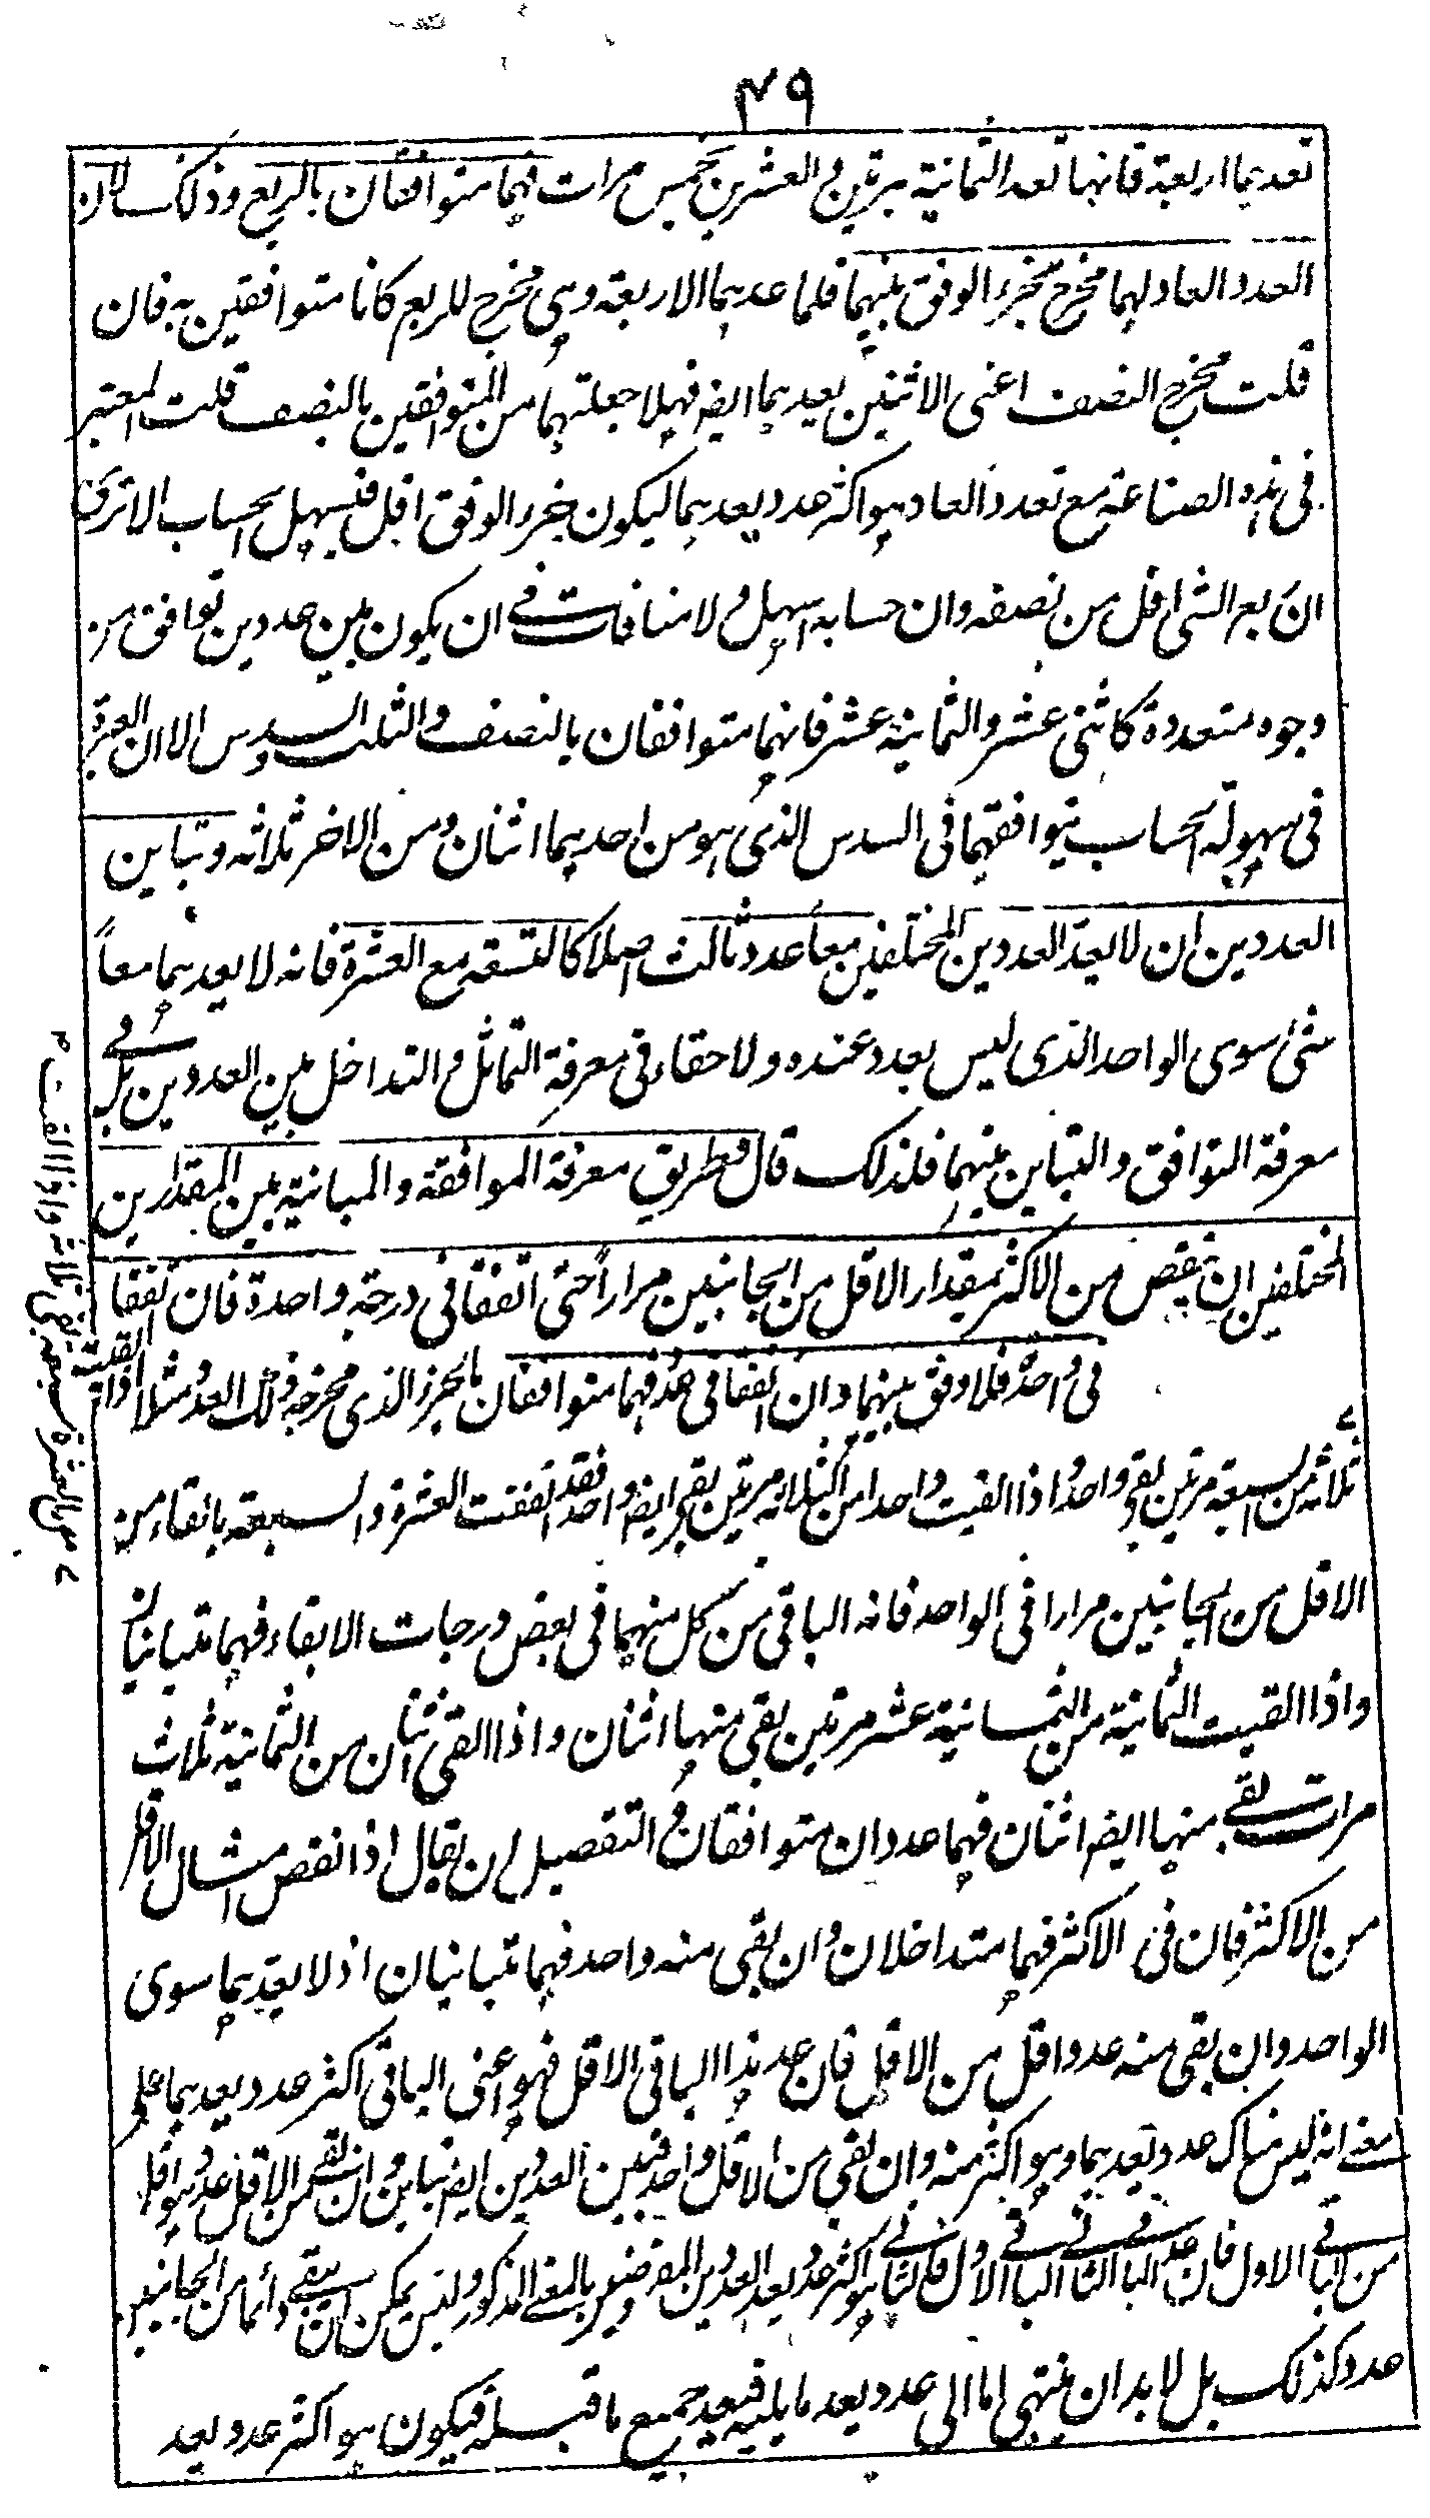 ٤٩
تعدهما اربعة فانها تعد الثمانية مرتين و العشرين خمس مرات فهما متوافقان بالربع وذلك لان
العدد العاد لهما مخرج لجزء الوفق بينهما فلما عدهما الاربعة وهي مخرج للربع كانا متوافقين به فان
قلت مخرج النصف اعنى الاثنين يعدهما ايضا فهلا جعلتهما من المتوافقين بالنصف قلت المعتبر
فى هذه الصناعة مع تعدد العاد هو اكثر عدد يعدهما ليكون جزء الوفق اقل فيسهل الحساب الا ترى
ان ربع الشئ اقل من نصفه وان حسابه اسهل و لا منافات فى ان يكون بين عددين توافق من
وجوه متعددة كاثنى عشر والثمانية عشر فانهما متوافقان بالنصف و الثلث والسدس الا ان العبرة
فى سهولة الحساب بتوافقهما فى السدس الذى هو من احدهما اثنان ومن الاخر ثلاثة وتباين
العددين ان لا يعد العددين المختلفين معاً عدد ثالث اصلا كالتسعة مع العشرة فانه لا يعدهما معاً
شئ سوى الواحد الذى ليس بعدد عنده ولا خفاء فى معرفة التماثل و التداخل بين العددين بل فى
معرفة التوافق والتباين بينهما فلذلك قال فطريق معرفة الموافقة والمباينة بين المقدارين
المختلفين ان ينقص من الاكثر بمقدار الاقل من الجانبين مراراً حتى اتفقا فى درجة واحدة فان اتفقا
فى واحد فلا وفق بينهما وان اتفقا فى عدد فهما متوافقان بالجزء الذى مخرجه ذلك العدد مثلا اذا القيت
ثلاثة من السبعة مرتين بقى واحد و اذا القيت واحدا من الثلاثة مرتين بقى ايضا واحد فقد اتفقت العشرة والسبعة بالقاء من
الاقل من الجانبين مرارا فى الواحد فانه الباقى من كل منهما فى بعض درجات الابقاء فهما متباينان
واذا القيت الثمانية من الثمانية عشر مرتين بقى منها اثنان واذا القى اثنان من الثمانية ثلاث
مرات بقى منها ايضا اثنان فهما عددان متوافقان و التفصيل ان يقال اذا نقص امثال الاقل
من الاكثر فان فنى الاكثر فهما متداخلان وان بقى منه واحد فهما متباينان اذ لا يعدهما سوى
الواحد وان بقى منه عدد اقل من الاقل فان عد هذا الباقى الاقل فهو اعنى الباقى اكثر عدد يعدهما على
معنى انه ليس هناك عدد يعدهما وهو اكثر منه وان بقى من الاقل واحد فبين العددين ايضا تباين وان بقى من الاقل عدد هو اقل
من الباقى الاول فان عد الباقى الثانى الباقى الاول فالثانى هو اكثر عدد يعد العددين المفروضين بالمعنى المذكور وليس يمكن ان يبقى دائما من الجانبين
عدد كذلك بل لابد ان ينتهى اما الى عدد يعد ما يليه فيعد جميع ما قبله فيكون هو اكثر عدد يعد